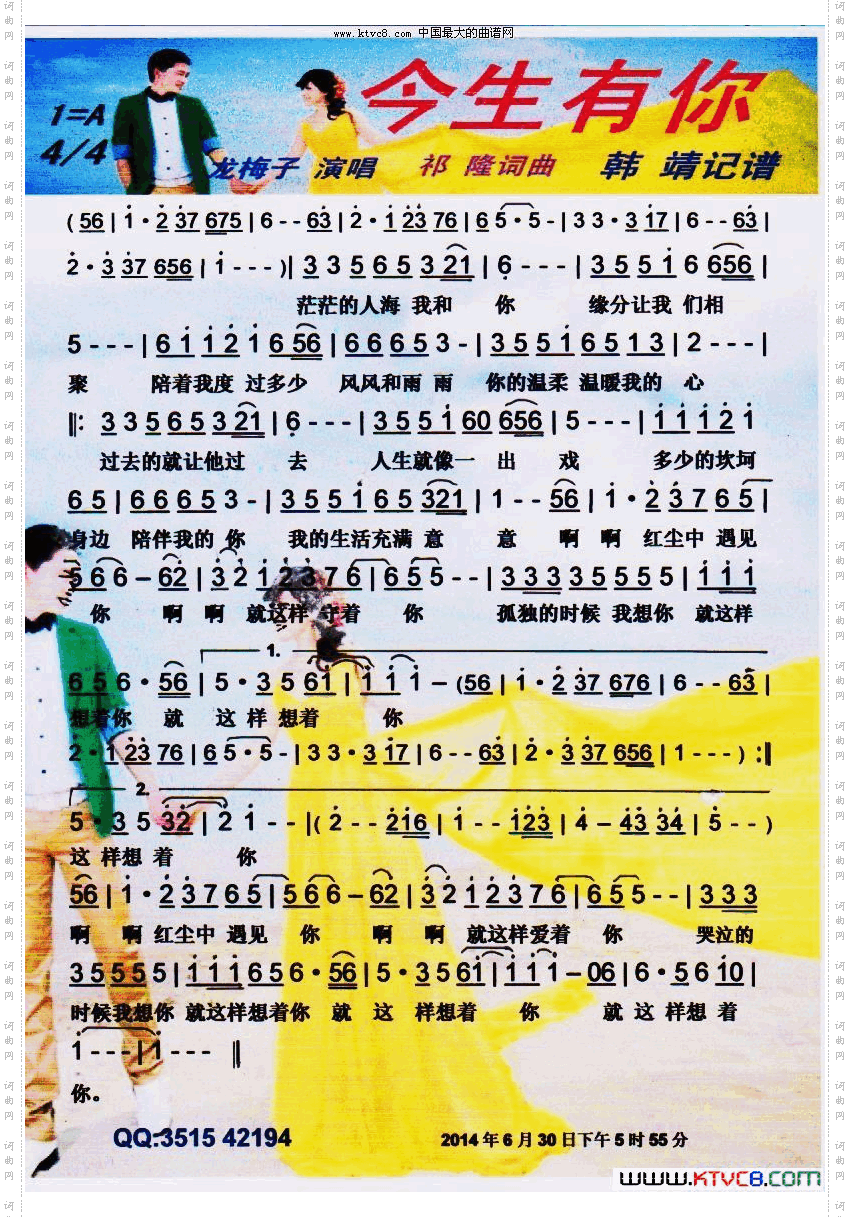 www.ktvc8.com 中国最大的曲谱网
今生有你
1=A
4/4
龙梅子 演唱 祁 隆词曲 韩 靖记谱
(56|1·2 37 675|6--63|2·1 23 76|6 5·5-|3 3·3 17|6--63|
2·3 37 656|1---)|3 3 5 6 5 3 21|6---|3 5 5 1 6 656|
茫茫的人海 我和 你 缘分让我 们相
5---|6 1 1 2 1 6 56|6 6 6 5 3-|3 5 5 1 6 5 1 3|2---|
聚 陪着我度 过多少 风风和雨 雨 你的温柔 温暖我的 心
||: 3 3 5 6 5 3 21|6---|3 5 5 1 60 656|5---|1 1 1 2 1
过去的就让他过 去 人生就像一 出 戏 多少的坎坷
6 5|6 6 6 5 3-|3 5 5 1 6 5 321|1--56|1·2 3 7 6 5|
身边 陪伴我的 你 我的生活充满 意 意 啊 啊 红尘中 遇见
5 6 6-62|3 2 1 2 3 7 6|6 5 5--|3 3 3 3 5 5 5 5|1 1 1
你 啊 啊 就这样 守着 你 孤独的时候 我想你 就这样
1.
6 5 6·56|5·3 5 61|1 1 1-(56|1·2 37 676|6--63|
想着你 就 这 样 想着 你
2·1 23 76|6 5·5-|3 3·3 17|6--63|2·3 37 656|1---):||
2.
5·3 5 32|2 1--|(2--216|1--123|4-43 34|5--)
这 样想 着 你
56|1·2 3 7 6 5|5 6 6-62|3 2 1 2 3 7 6|6 5 5--|3 3 3
啊 啊 红尘中 遇见 你 啊 啊 就这样爱着 你 哭泣的
3 5 5 5 5|1 1 1 6 5 6·56|5·3 5 61|1 1 1-06|6·5 6 10|
时候我想你 就这样想着你 就 这 样想着 你 就 这 样想 着
1---|1---||
你。
QQ:3515 42194 2014年6月30日下午5时55分
www.KTVC8.com
词曲网